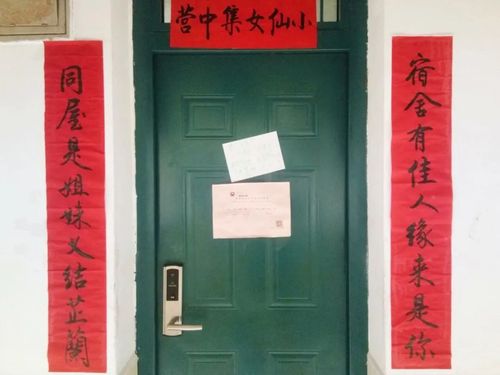 小仙女集中营
宿舍有佳人缘来是你
同屋是姐妹义结芷蘭